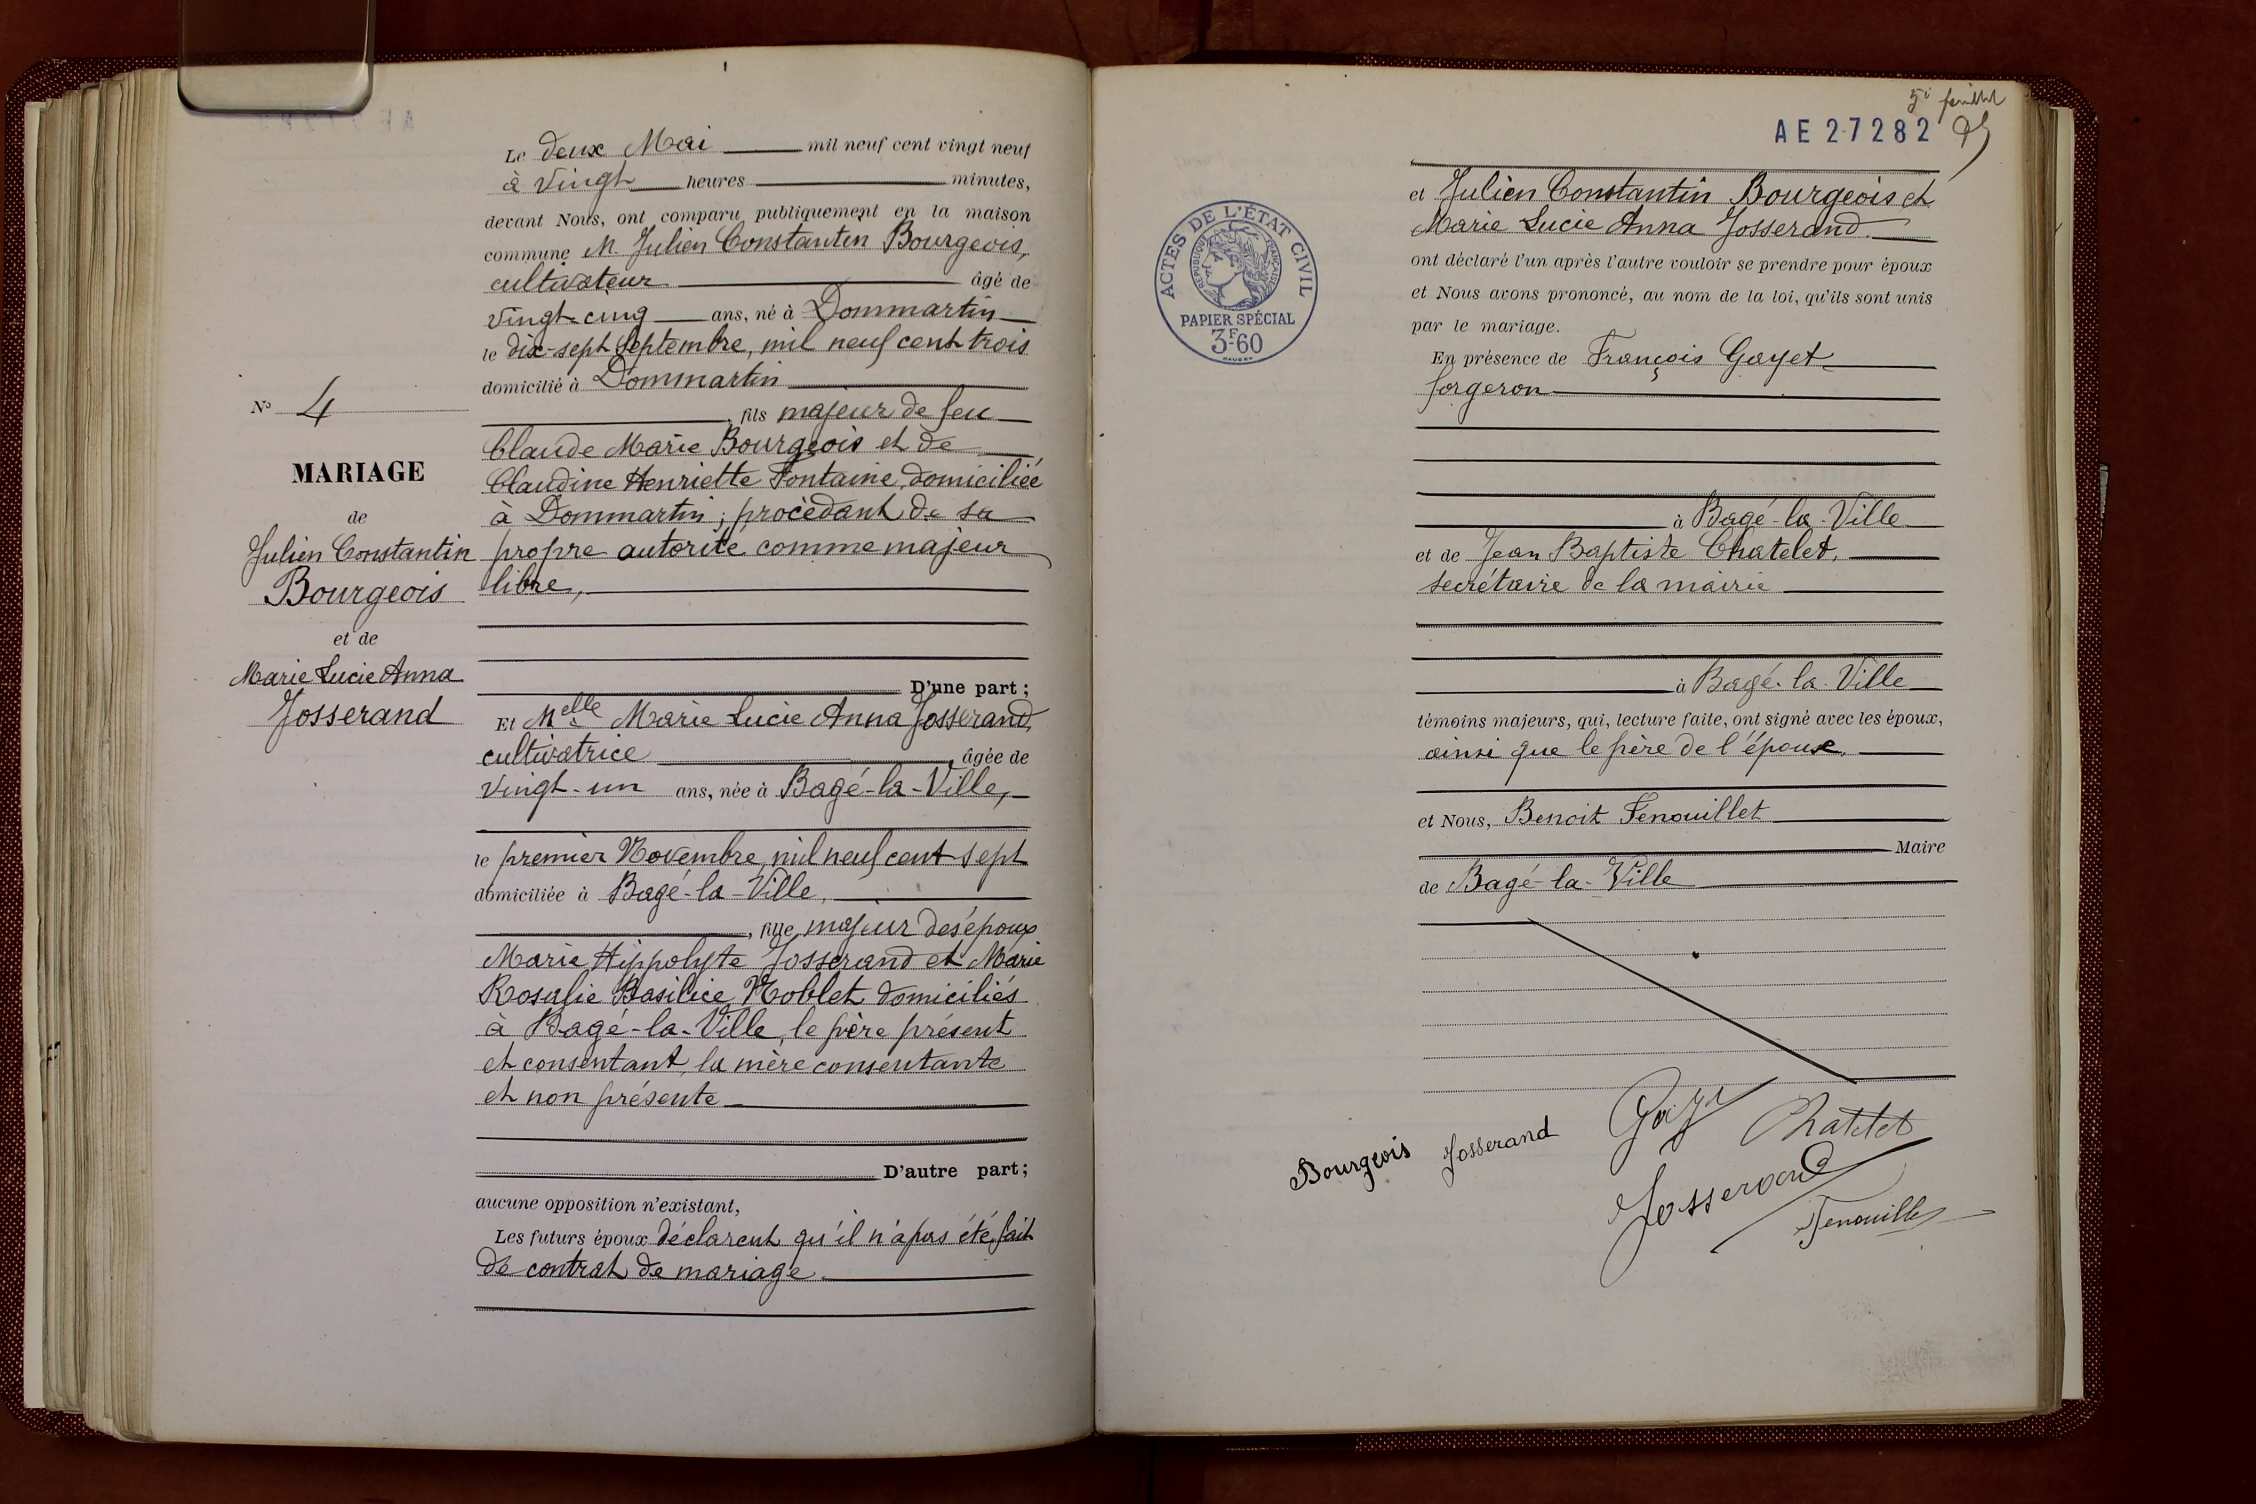 Le deux Mai mil neuf cent vingt neuf
à vingt heures minutes,
devant Nous, ont comparu publiquement en la maison
commune M. Julien Constantin Bourgeois,
cultivateur âgé de
vingt-cinq ans, né à Dommartin
le dix-sept Septembre, mil neuf cent trois
domicilié à Dommartin
, fils majeur de feu
Claude Marie Bourgeois et de
Claudine Henriette Fontaine, domiciliée
à Dommartin ; procédant de sa
propre autorité comme majeur
libre,
D'une part ;
Et Melle Marie Lucie Anna Josserand,
cultivatrice âgée de
vingt-un ans, née à Bagé-la-Ville,
le premier Novembre, mil neuf cent sept
domiciliée à Bagé-la-Ville,
, fille majeur des époux
Marie Hippolyte Josserand et Marie
Rosalie Basilice Noblet domiciliés
à Bagé-la-Ville, le père présent
et consentant, la mère consentante
et non présente
D'autre part ;
aucune opposition n'existant,
Les futurs époux déclarent qu'il n'a pas été fait
de contrat de mariage.
No 4
MARIAGE
de
Julien Constantin
Bourgeois
et de
Marie Lucie Anna
Josserand
5e feuillet
AE 27282
ACTES DE L'ÉTAT CIVIL
RÉPUBLIQUE FRANÇAISE
PAPIER SPÉCIAL
3F60
et Julien Constantin Bourgeois et
Marie Lucie Anna Josserand
ont déclaré l'un après l'autre vouloir se prendre pour époux
et Nous avons prononcé, au nom de la loi, qu'ils sont unis
par le mariage.
En présence de François Gayet
forgeron
à Bagé-la-Ville
et de Jean Baptiste Chatelet,
secrétaire de la mairie
à Bagé-la-Ville
témoins majeurs, qui, lecture faite, ont signé avec les époux,
ainsi que le père de l'épouse.
et Nous, Benoit Fenouillet
Maire
de Bagé-la-Ville
Bourgeois Josserand Gayet Chatelet
Josserand
Fenouillet